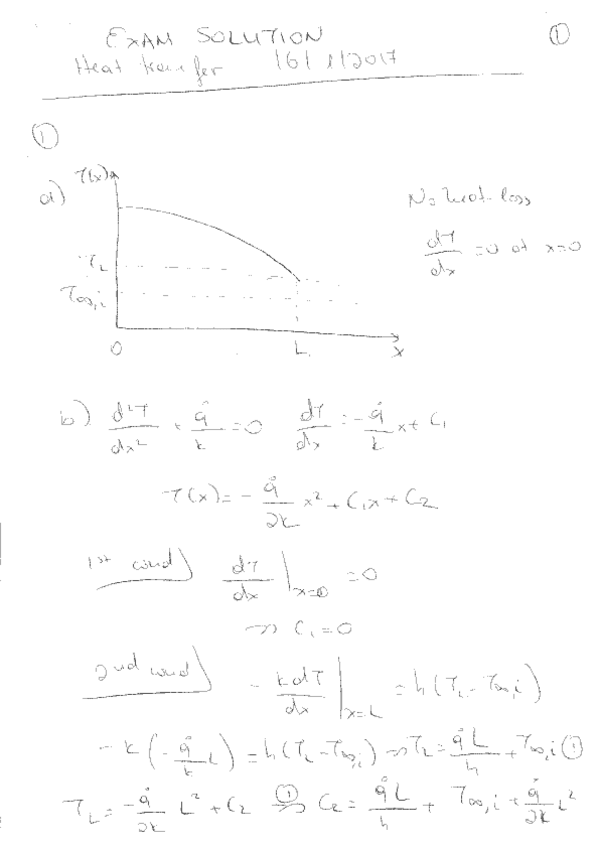 EXAM SOLUTION ①
Heat transfer 16/1/2017
①
a) T(x)
No heat loss
dT/dx = 0 at x=0
T_L
T_∞,i
0 L x
b) d²T/dx² + q̇/k = 0 dT/dx = -q̇/k x + C₁
T(x) = -q̇/2k x² + C₁x + C₂
1st cond) dT/dx |x=0 = 0
⇝ C₁ = 0
2nd cond) -k dT/dx |x=L = h(T_L - T_∞,i)
-k(-q̇/k L) = h(T_L - T_∞,i) ⇝ T_L = q̇L/h + T_∞,i ①
T_L = -q̇/2k L² + C₂ ①⇝ C₂ = q̇L/h + T_∞,i + q̇/2k L²